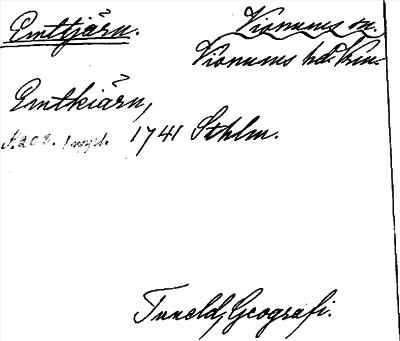 Emttjärn.
Visnums sn.
Visnums hd.
Emtkiärn,
s. 203. 1741 Sthlm.
Tuneld, Geografi.